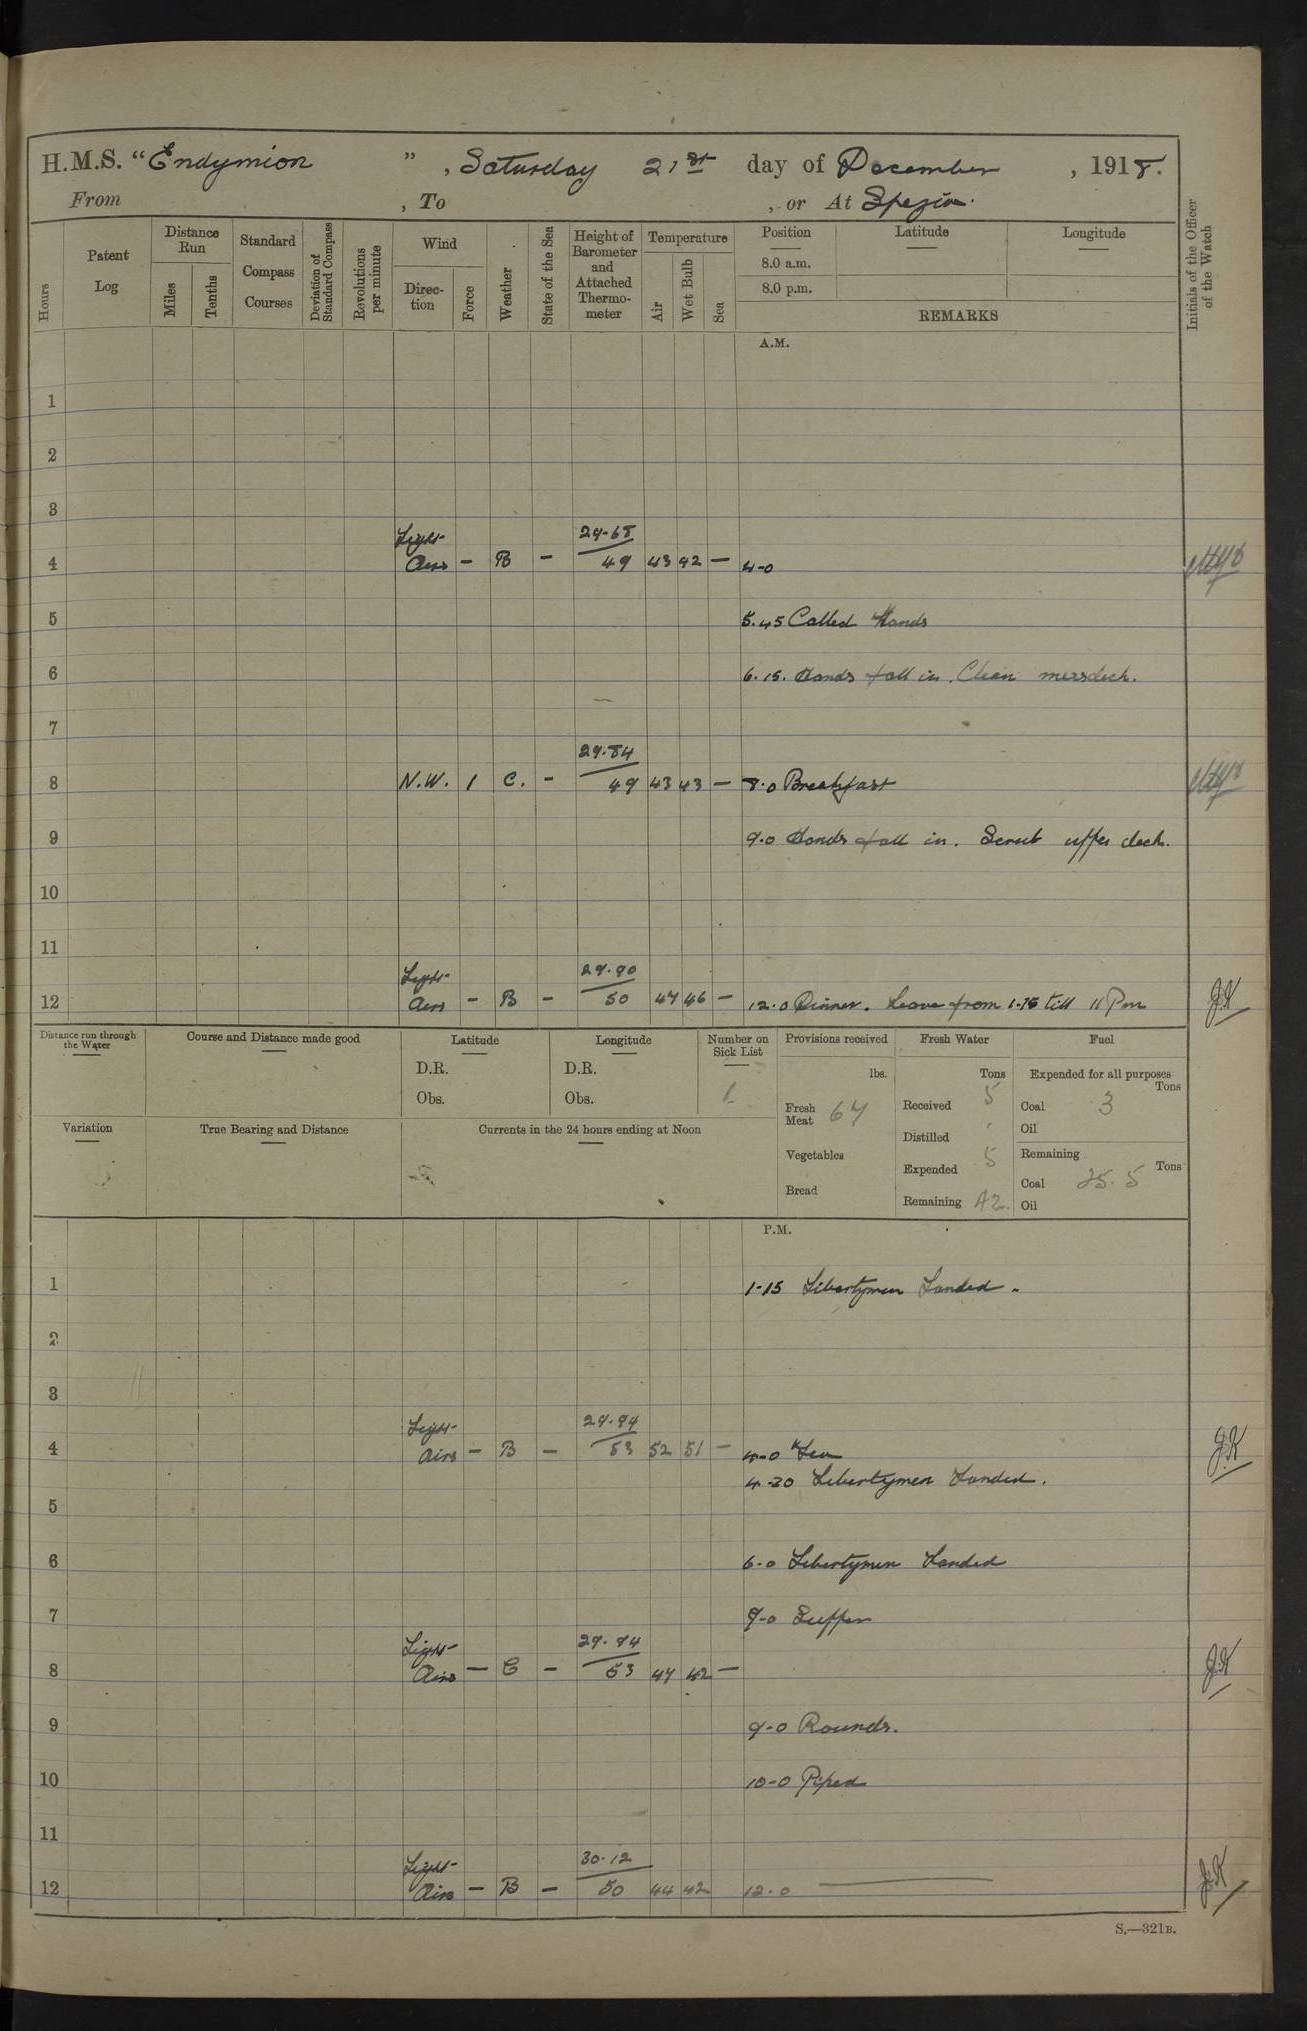 H.M.S. "Endymion", Saturday 21st day of December, 1918.
From , To , or At Spezia.
Hours
Patent Log
Distance Run
Miles
Tenths
Standard Compass Courses
Deviation of Standard Compass
Revolutions per minute
Wind
Direction
Force
Weather
State of the Sea
Height of Barometer and Attached Thermometer
Temperature
Air
Wet Bulb
Sea
Position
8.0 a.m.
8.0 p.m.
Latitude
Longitude
REMARKS
Initials of the Officer of the Watch
A.M.
1
2
3
Light 29.68
4 Airs – B – 49 43 42 – 4-0
5 5.45 Called Hands
6 6.15. Hands fall in. Clean messdeck.
7
29.84
8 N.W. 1 C. – 49 43 43 – 8.0 Breakfast
9 9.0 Hands fall in. Scrub upper deck.
10
11
Light 29.90
12 Airs – B – 50 47 46 – 12.0 Dinner. Leave from 1-15 till 11 Pm J.K
Distance run through the Water
Course and Distance made good
Latitude
D.R.
Obs.
Longitude
D.R.
Obs.
Number on Sick List
1
Provisions received
lbs.
Fresh Meat 64
Vegetables
Bread
Fresh Water
Tons
Received 5
Distilled
Expended 5
Remaining 42.
Fuel
Expended for all purposes
Tons
Coal 3
Oil
Remaining
Tons
Coal 25.5
Oil
Variation
True Bearing and Distance
Currents in the 24 hours ending at Noon
P.M.
1 1-15 Libertymen Landed.
2
3
Light 29.94
4 Airs – B – 53 52 51 – 4-0 Tea J.K
4-30 Libertymen Landed.
5
6 6-0 Libertymen Landed
7 7-0 Supper
Light 29.94
8 Airs – C – 53 47 42 – J.K
9 9-0 Rounds.
10 10-0 Piped
11
Light 30.12
12 Airs – B – 50 44 42 12.0 J.K
S.—321B.